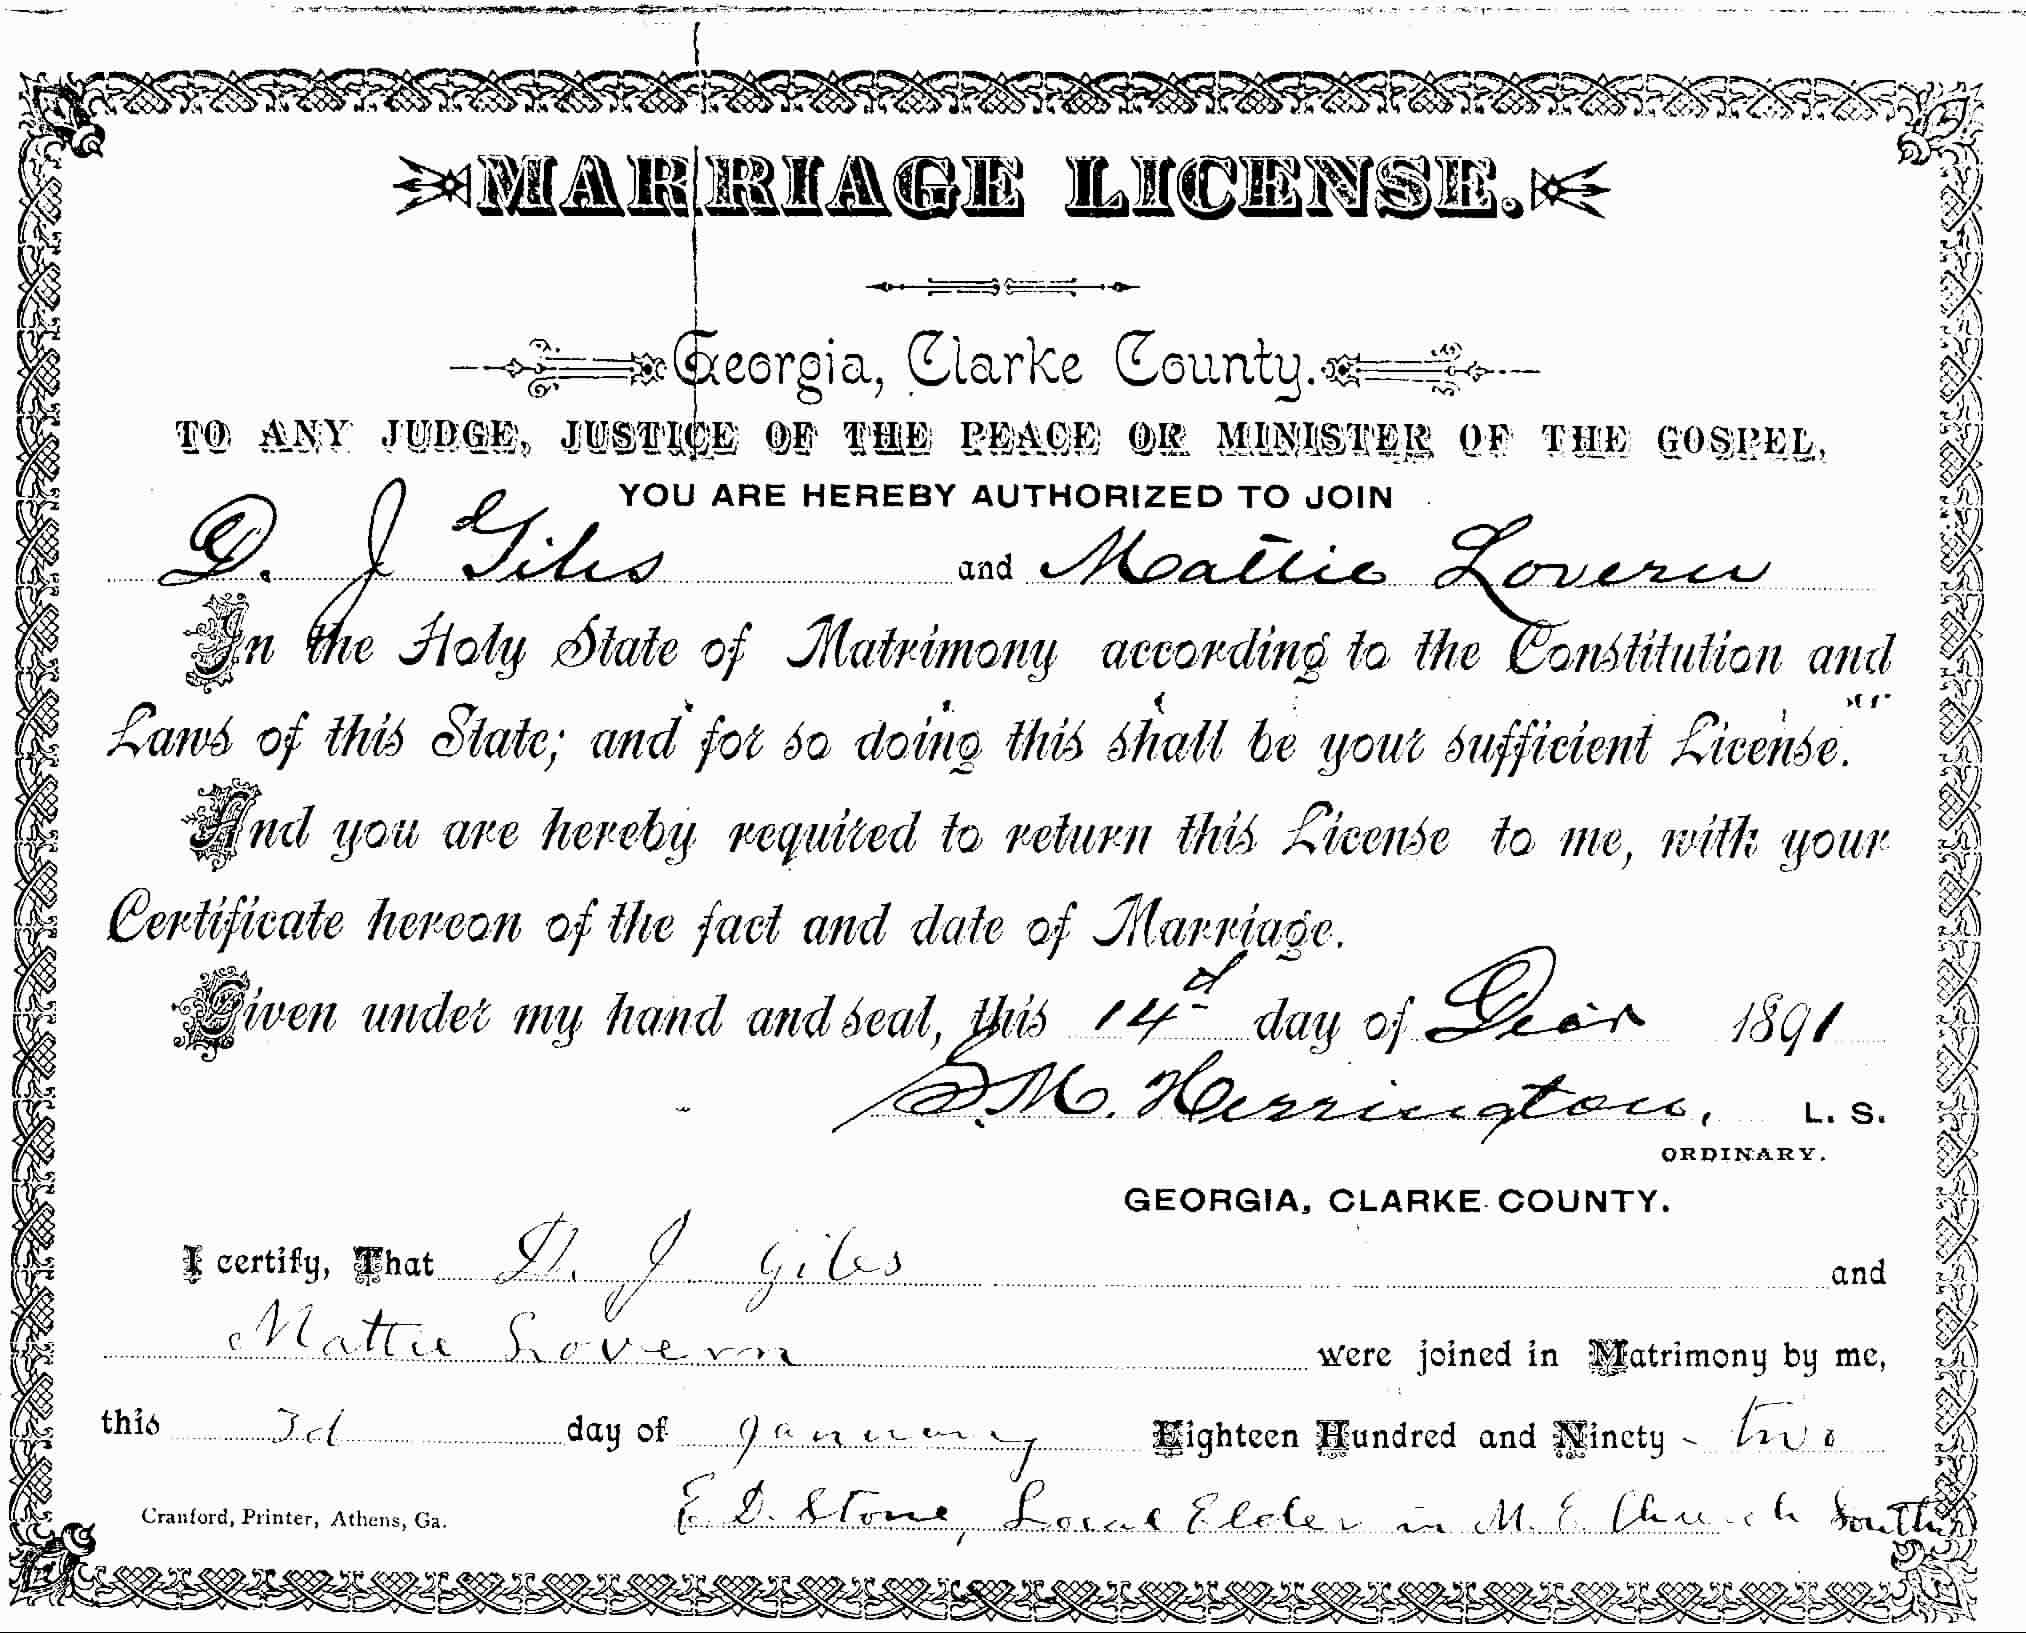 MARRIAGE LICENSE.
Georgia, Clarke County.
TO ANY JUDGE, JUSTICE OF THE PEACE OR MINISTER OF THE GOSPEL,
YOU ARE HEREBY AUTHORIZED TO JOIN
D. J Giles and Mattie Lovern
In the Holy State of Matrimony according to the Constitution and
Laws of this State; and for so doing this shall be your sufficient License.
And you are hereby required to return this License to me, with your
Certificate hereon of the fact and date of Marriage.
Given under my hand and seal, this 14 day of 1891
S. M. Herrington, L. S.
ORDINARY.
GEORGIA, CLARKE COUNTY.
I certify, That D. J Giles and
Mattie Lovern were joined in Matrimony by me,
this 3d day of January Eighteen Hundred and Ninety - two
Cranford, Printer, Athens, Ga. E. D. Stone, Local Elder in M. E. Church South